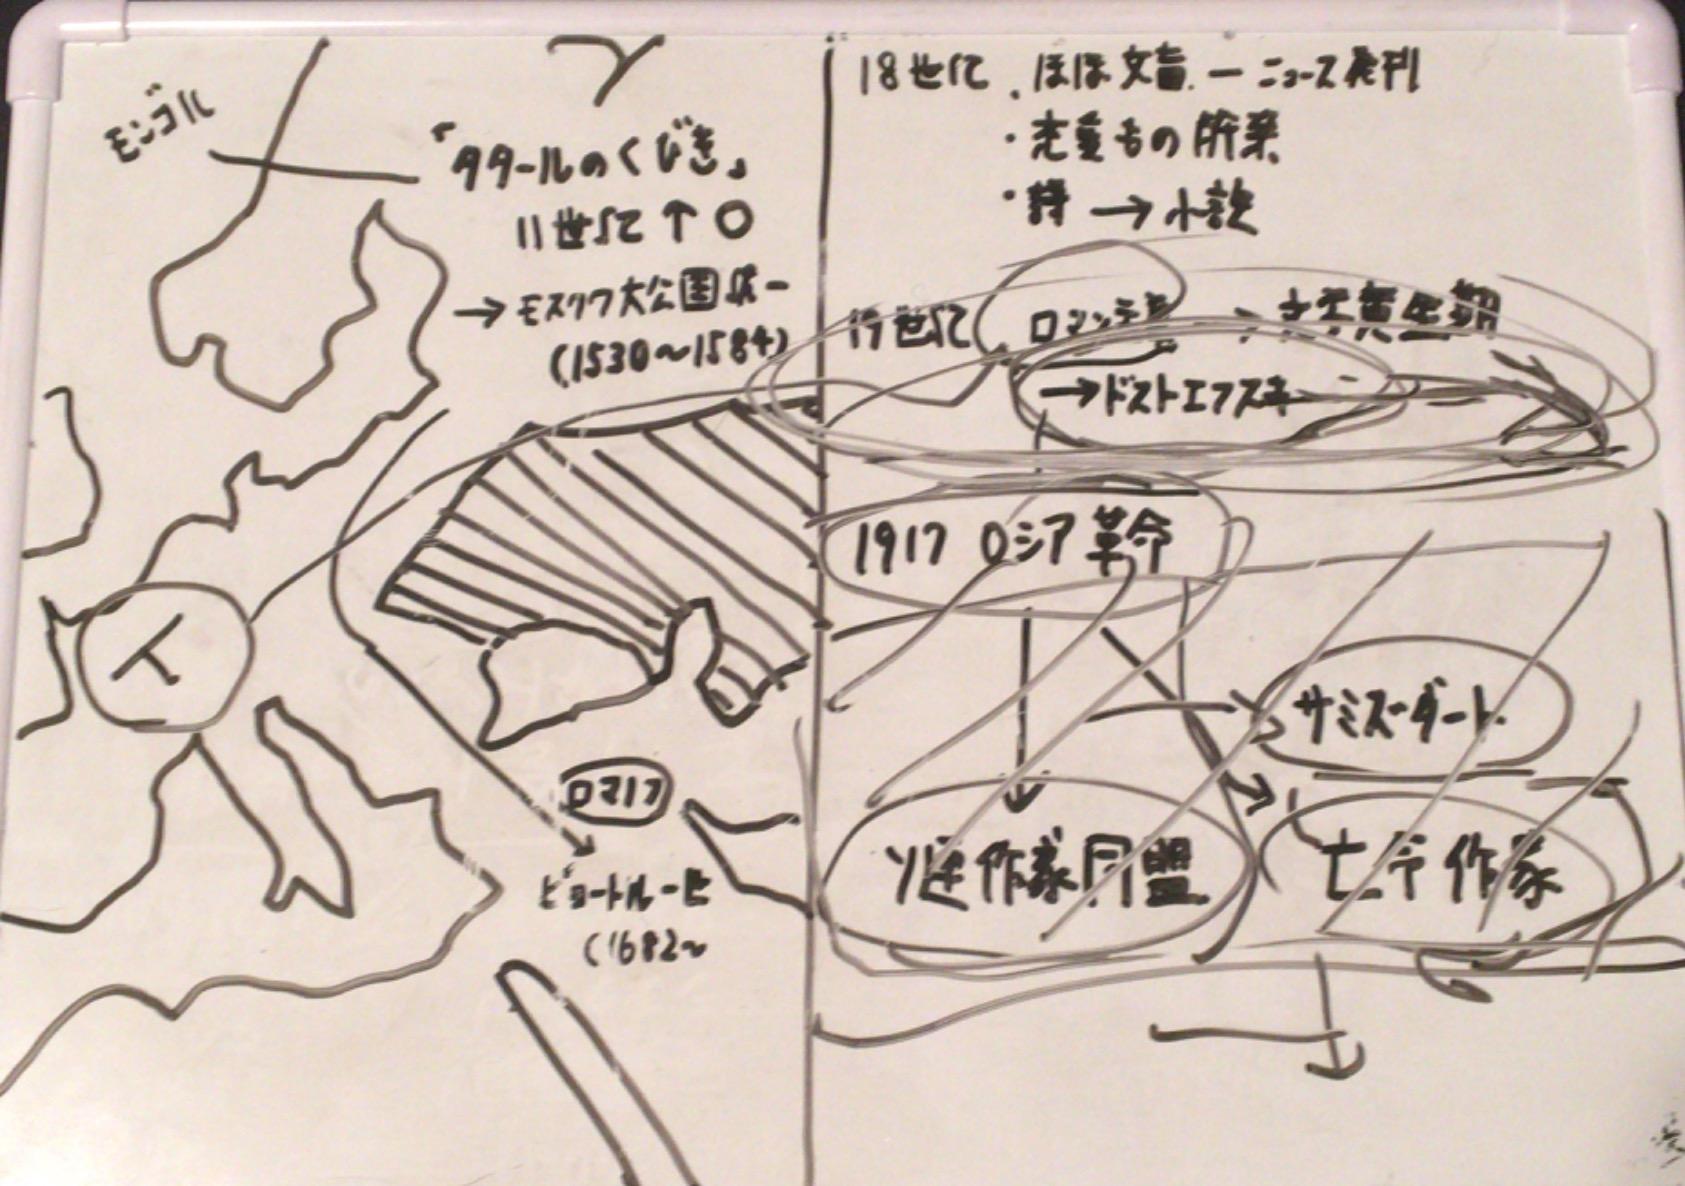 モンゴル
「タタールのくびき」
11世紀 ↑ ○
→ モスクワ大公国 統一
(1530～1584)
イ
ロマノフ
ピョートル一世
(1682～
18世紀 ・ほぼ文盲 ー ニュース発刊
・売
もの
・詩 → 小説
19世紀 ロマンテ
→ドストエフスキー
1917 ロシア革命
サミズダート
ソ連作家同盟
亡命作家